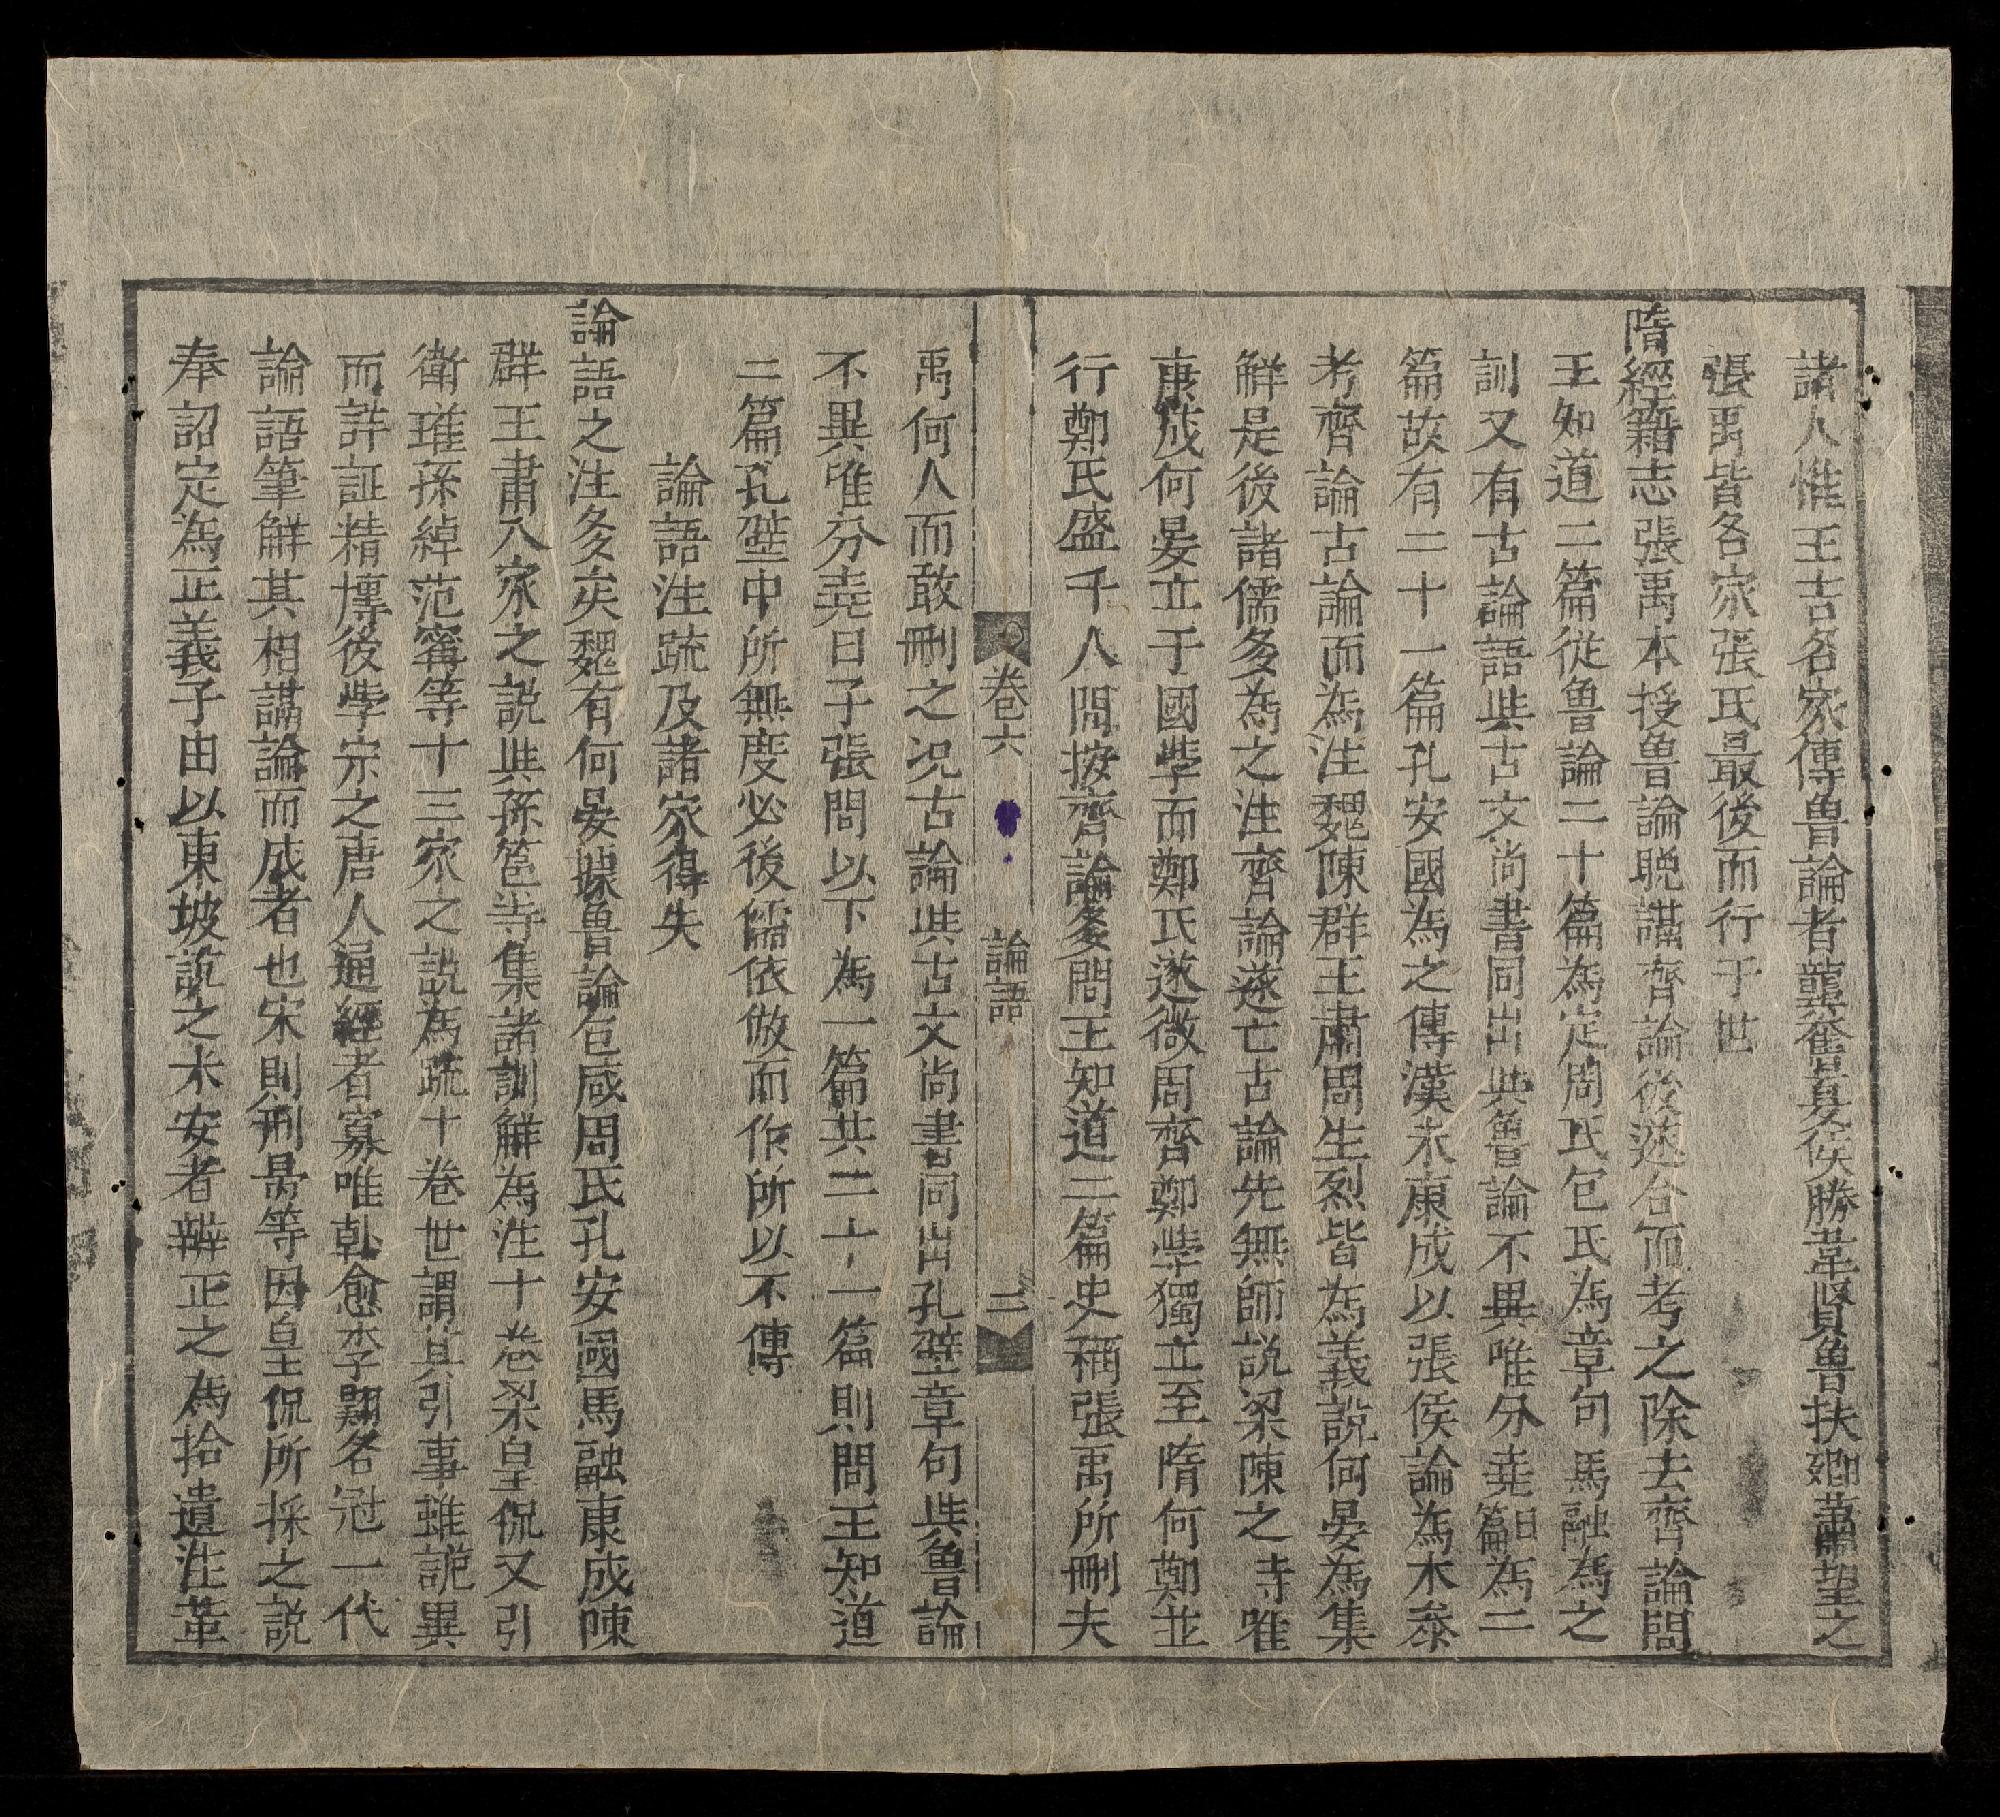 諸人惟王吉名家傳魯論者龔奮夏侯勝韋賢魯扶卿蕭望之
張禹皆名家張氏最後而行于世
隋經籍志張禹本授魯論晚講齊論後遂合而考之除去齊論問
王知道二篇從魯論二十篇為定周氏包氏為章句馬融為之
訓又有古論語與古文尚書同出與魯論不異唯分堯曰篇為二
篇故有二十一篇孔安國為之傳漢末康成以張侯論為本叅
考齊論古論而為注魏陳群王肅周生烈皆為義說何晏為集
觧是後諸儒多為之注齊論遂亡古論先無師説梁陳之時唯
康成何晏立于國學而鄭氏遂微周齊鄭學獨立至隋何鄭並
行鄭氏盛于人間按齊論多問王知道二篇史稱張禹所刪夫
卷六 論語 二
禹何人而敢刪之况古論與古文尚書同出孔壁章句與魯論
不異唯分堯曰子張問以下為一篇共二十一篇則問王知道
二篇孔壁中所無度必後儒依倣而作所以不傳
論語注疏及諸家得失
論語之注多矣魏有何晏據魯論包咸周氏孔安國馬融康成陳
群王肅八家之説與孫邕等集諸訓觧為注十卷梁皇侃又引
衛瓘孫綽范寗等十三家之説為疏十卷世謂其引事雖詭異
而詳証精博後學宗之唐人通經者寡唯韓愈李翺名冠一代
論語筆觧其相講論而成者也宋則邢昺等因皇侃所採之説
奉詔定為正義子由以東坡説之未安者辨正之為拾遺注革